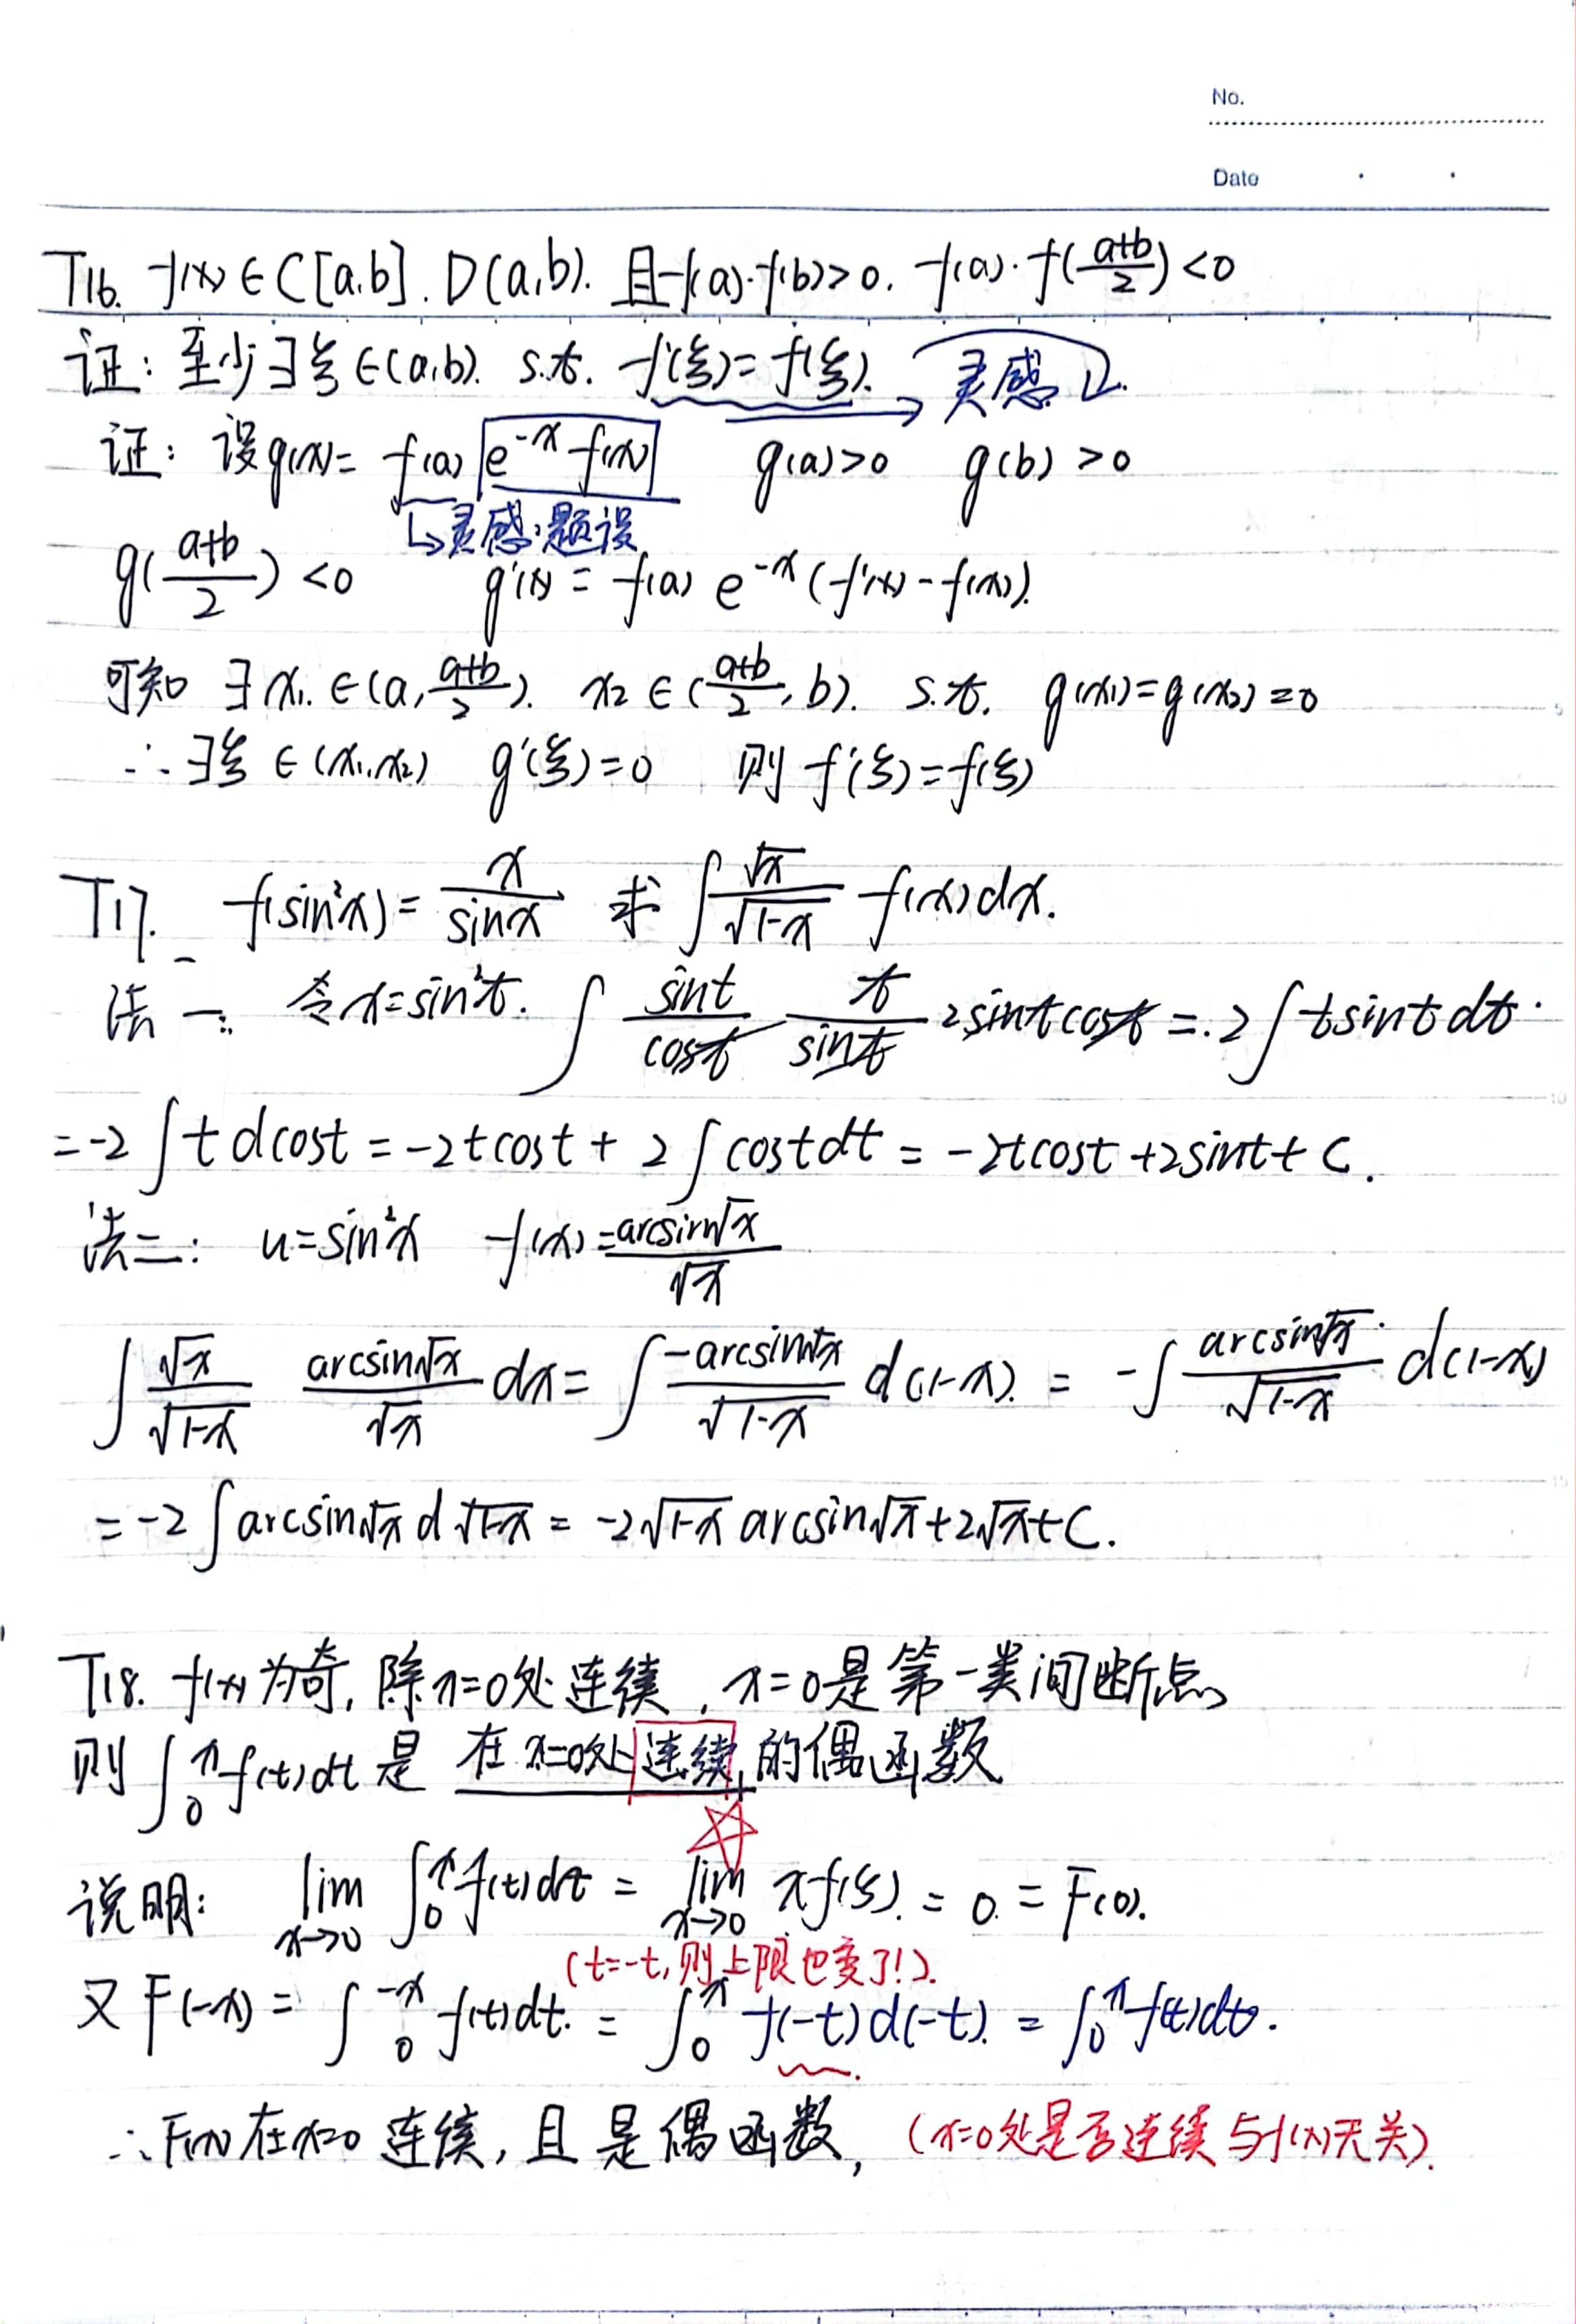 No.
Date
T16. f(x)∈C[a,b]. D(a,b). 且f(a)·f(b)>0. f(a)·f(\frac{a+b}{2})<0
证: 至少∃ξ∈(a,b). s.t. f'(ξ)=f(ξ). 灵感
证: 设g(x)= f(a) e^{-x} f(x) g(a)>0 g(b)>0
↳灵感:题设
g(\frac{a+b}{2})<0 g'(x) = f(a) e^{-x} (f'(x)-f(x)).
可知 ∃x₁.∈(a,\frac{a+b}{2}). x₂∈(\frac{a+b}{2},b). s.t. g(x₁)=g(x₂)=0
∴∃ξ∈(x₁,x₂) g'(ξ)=0 则 f'(ξ)=f(ξ)
T17. f(sin²x)=\frac{x}{sinx} 求 ∫\frac{√x}{√(1-x)} f(x)dx.
法一: 令x=sin²t. ∫ \frac{sint}{cost} \frac{t}{sint} 2sintcost =.2∫tsint dt.
=-2∫t dcost = -2tcost + 2∫costdt = -2tcost+2sint+C.
法二: u=sin²x f(x)=\frac{arcsin√x}{√x}
∫\frac{√x}{√(1-x)} \frac{arcsin√x}{√x} dx= ∫\frac{-arcsin√x}{√(1-x)} d(1-x). = -∫\frac{arcsin√x}{√(1-x)} d(1-x)
=-2∫arcsin√x d√(1-x) = -2√(1-x) arcsin√x+2√x+C.
T18. f(x)为奇, 除x=0处连续, x=0是第一类间断点
则∫₀ˣf(t)dt是 在x=0处连续的偶函数
说明: lim_{x→0} ∫₀ˣf(t)dt = lim_{x→0} xf(ξ). = 0 = F(0).
(t=-t,则上限也变了!).
又 F(-x) = ∫₀^{-x} f(t)dt. = ∫₀ˣ f(-t)d(-t). = ∫₀ˣf(t)dt.
∴F(x)在x=0连续, 且是偶函数, (x=0处是否连续与f(x)无关).